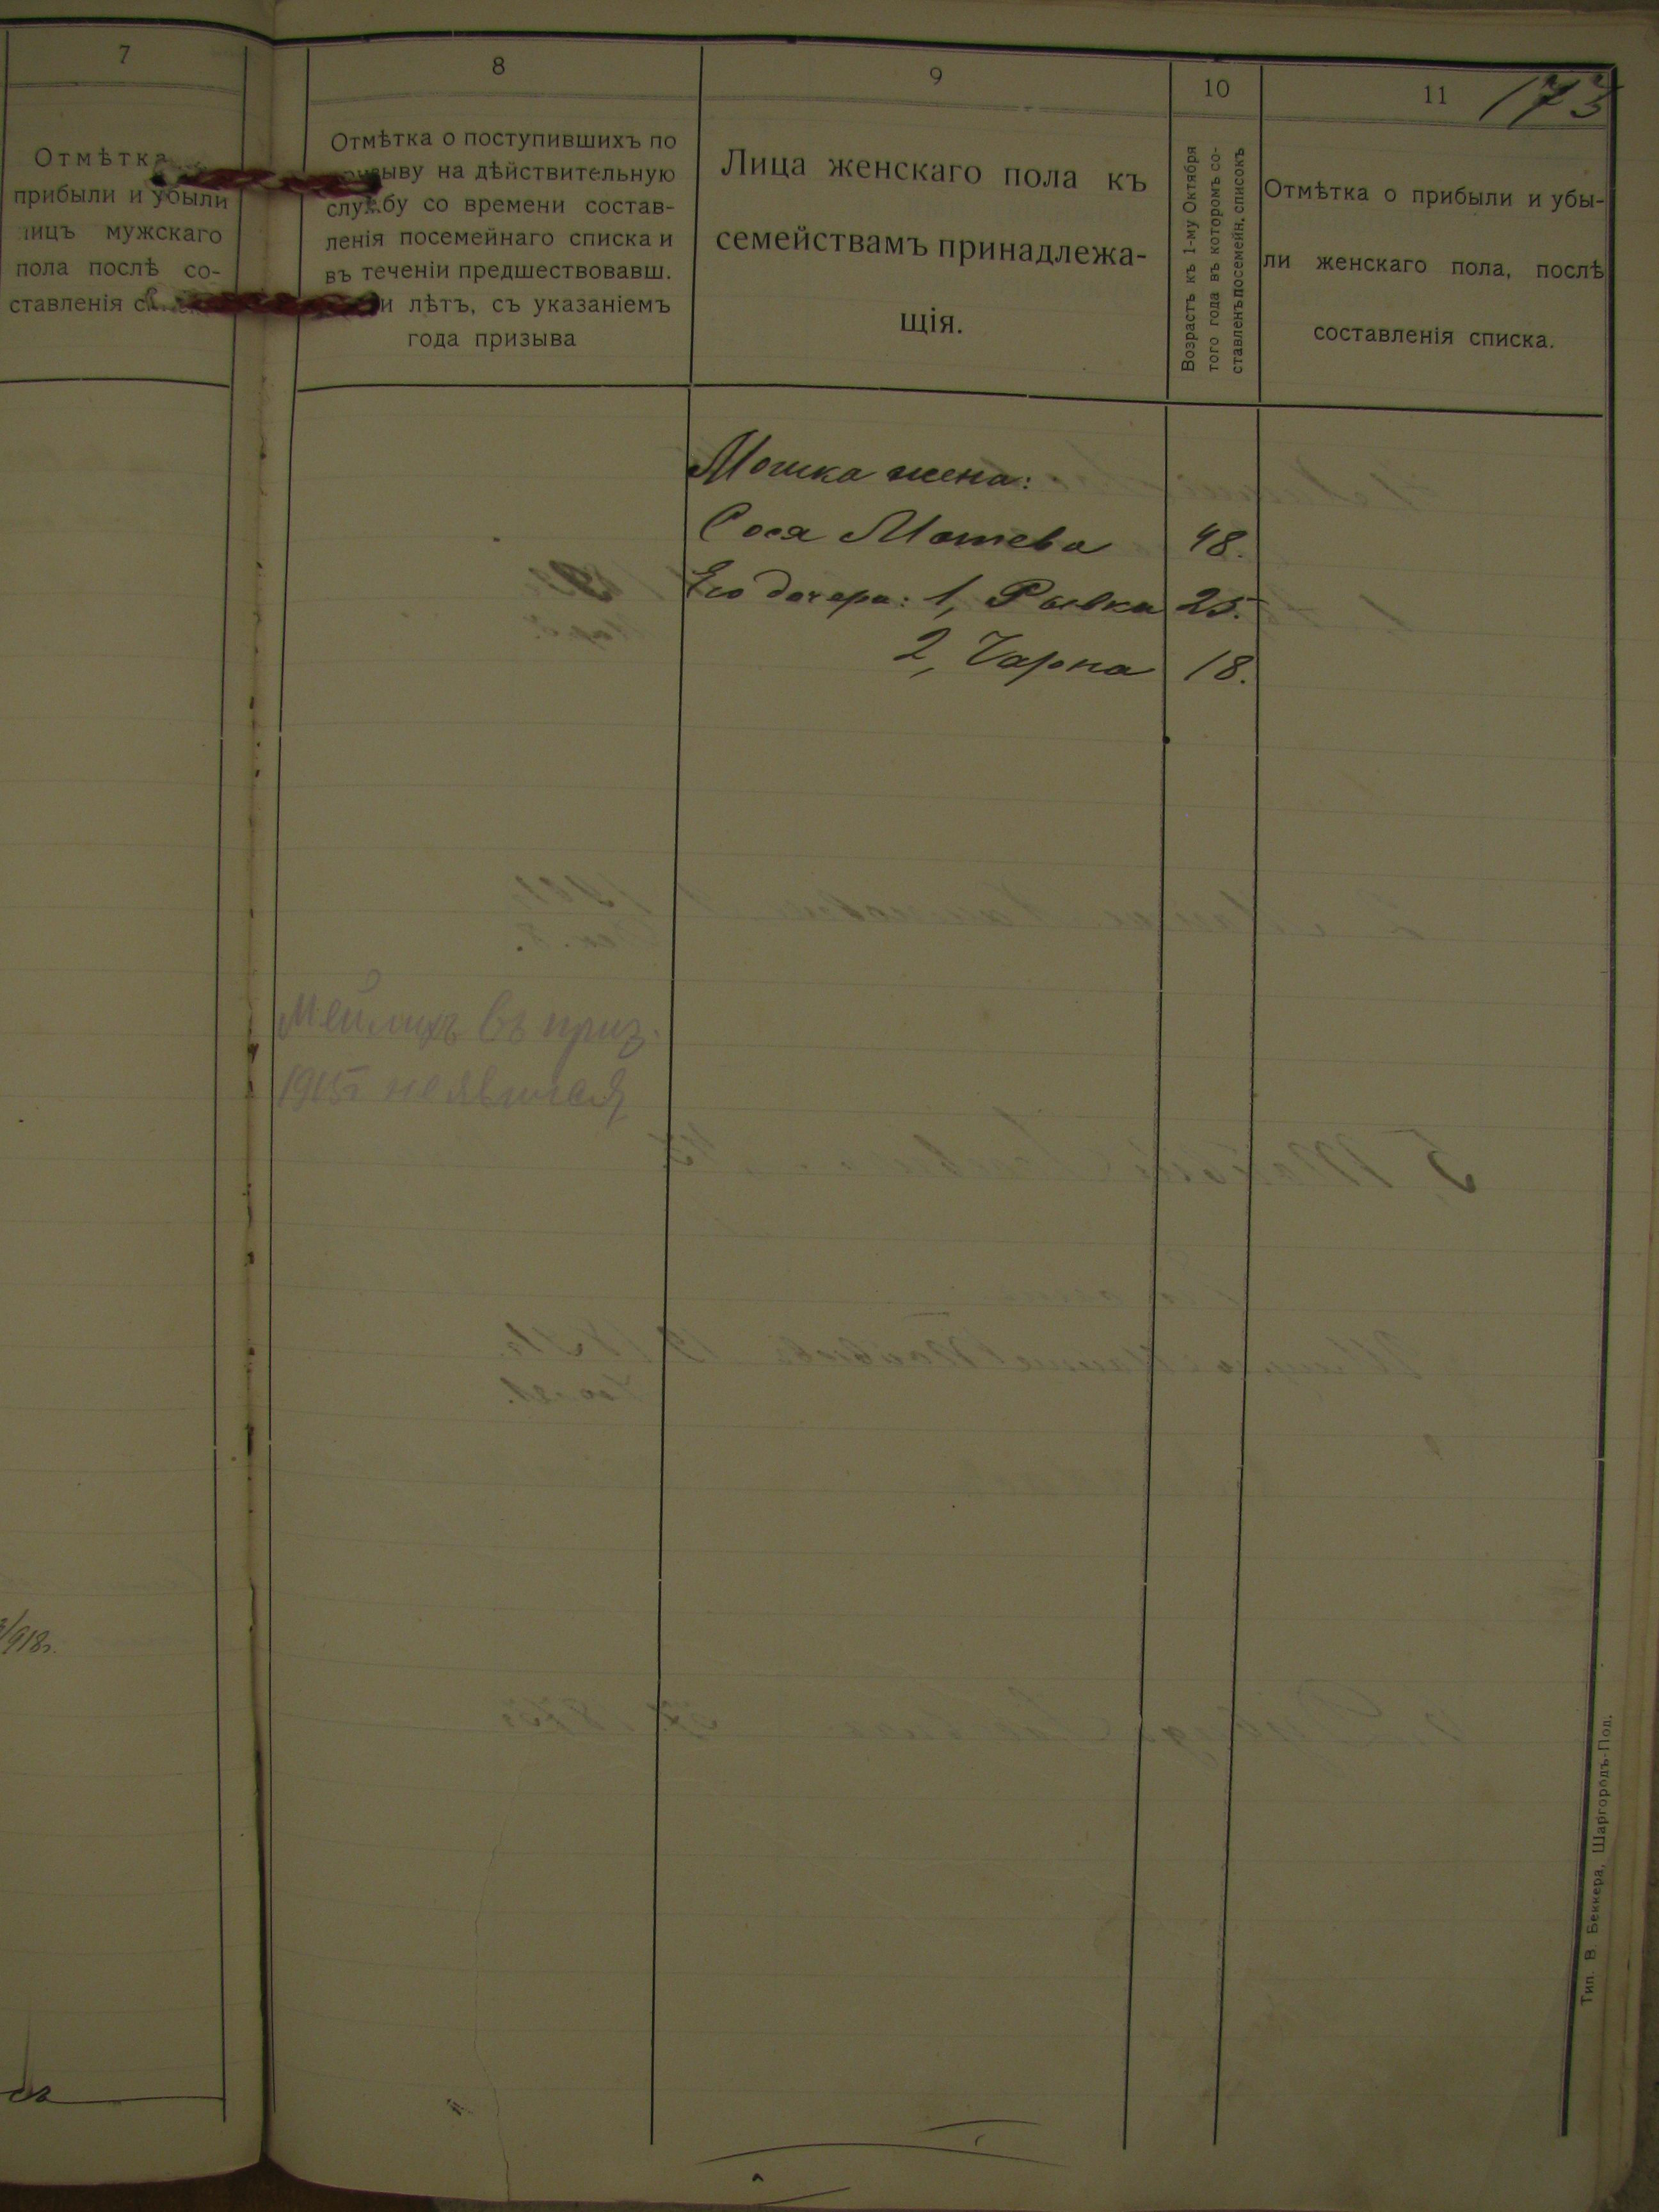 7
Отмѣтка
прибыли и убыли
лицъ мужскаго
пола послѣ со-
ставленія
/918г.
8
Отмѣтка о поступившихъ по
призыву на дѣйствительную
службу со времени состав-
ленія посемейнаго списка и
въ теченіи предшествовавш.
и лѣтъ, съ указаніемъ
года призыва
Мейлихъ въ приз.
1915г не явился
9
Лица женскаго пола къ
семействамъ принадлежа-
щія.
Мошка жена:
Сося Мошева
Его дочери: 1, Рывка
2, Чарна
10
Возрастъ къ 1-му Октября
того года въ которомъ со-
ставленъ посемейн. списокъ
48.
25.
18.
11
173
Отмѣтка о прибыли и убы-
ли женскаго пола, послѣ
составленія списка.
Тип. В. Беккера, Шаргородъ-Под.